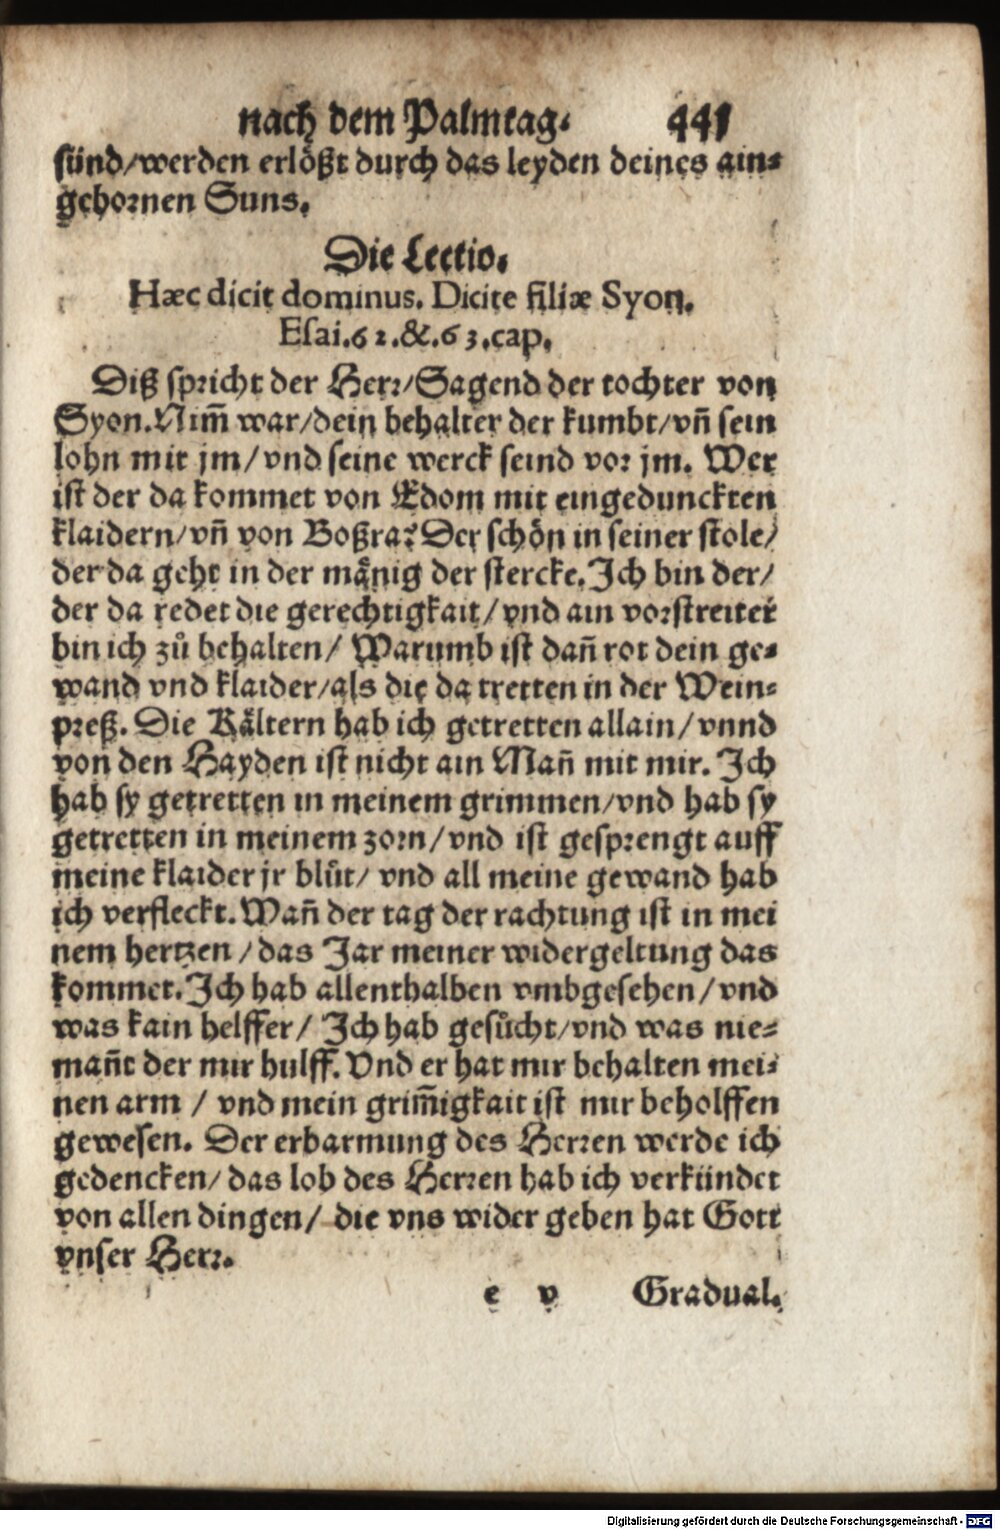 nach dem Palmtag. 441
sünd/werden erlößt durch das leyden deines ain⸗
gebornen Suns.
Die Lectio.
Hæc dicit dominus. Dicite filiæ Syon.
Esai.62.&.63.cap.
Diß spricht der Herr/Sagend der tochter von
Syon.Nim̃ war/dein behalter der kumbt/vñ sein
lohn mit jm/vnd seine werck seind vor jm. Wer
ist der da kommet von Edom mit eingedunckten
klaidern/vñ von Boßra? Der schön in seiner stole/
der da geht in der mänig der stercke. Ich bin der/
der da redet die gerechtigkait/vnd ain vorstreiter
bin ich zů behalten/ Warumb ist dañ rot dein ge⸗
wand vnd klaider/als die da tretten in der Wein⸗
preß. Die Kältern hab ich getretten allain/vnnd
von den Hayden ist nicht ain Mañ mit mir. Ich
hab sy getretten in meinem grimmen/vnd hab sy
getretten in meinem zorn/vnd ist gesprengt auff
meine klaider jr blůt/ vnd all meine gewand hab
ich verfleckt. Wañ der tag der rachtung ist in mei
nem hertzen /das Jar meiner widergeltung das
kommet. Ich hab allenthalben vmbgesehen/vnd
was kain helffer/ Ich hab gesůcht/vnd was nie⸗
mañt der mir hulff. Vnd er hat mir behalten mei⸗
nen arm / vnd mein grim̃igkait ist mir beholffen
gewesen. Der erbarmung des Herren werde ich
gedencken/das lob des Herren hab ich verkündet
von allen dingen/ die vns wider geben hat Gott
vnser Herr.
e v Gradual.
Digitalisierung gefördert durch die Deutsche Forschungsgemeinschaft - DFG